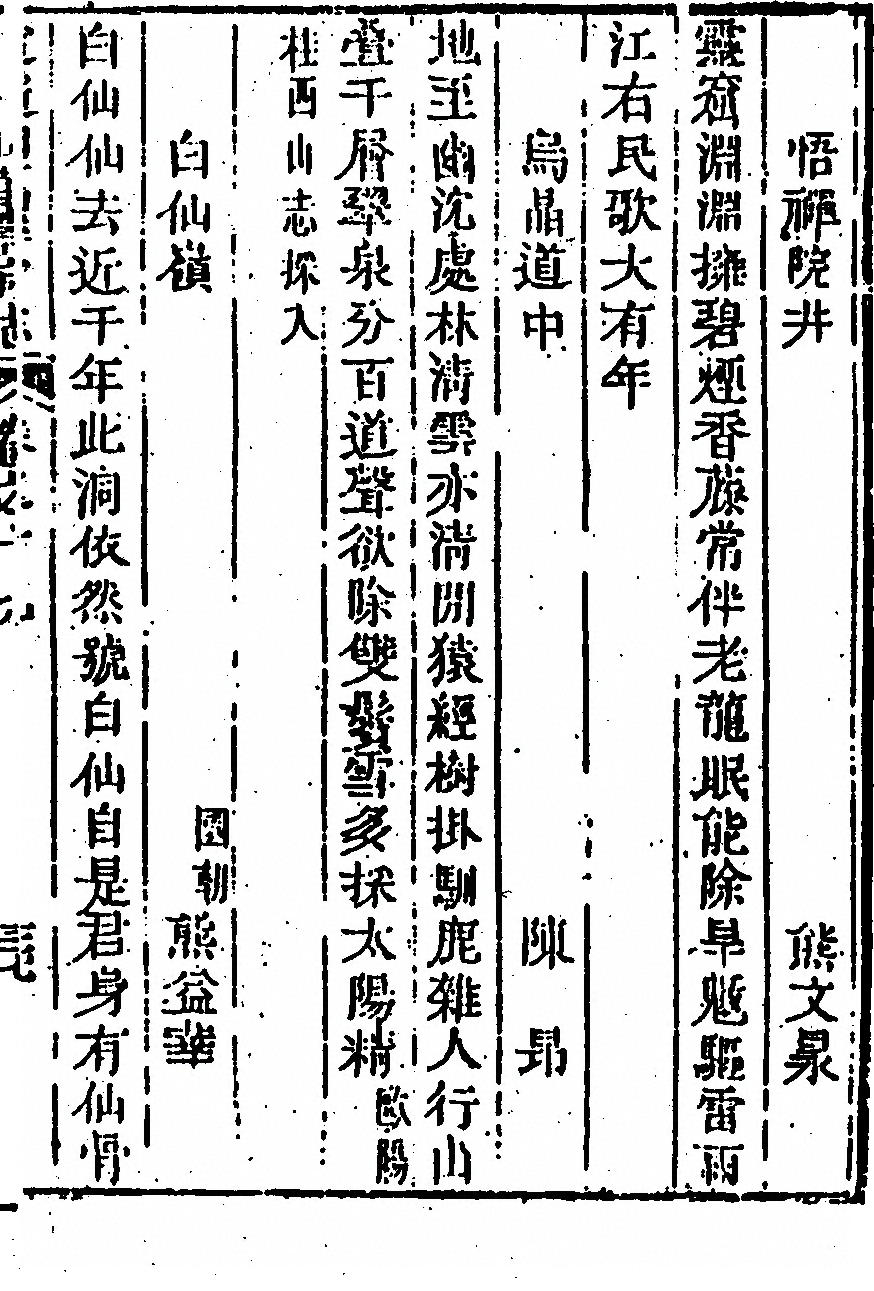 悟禪院井　熊文泉
靈窟淵淵擁碧煙香藤常伴老龍眠能除旱魃驅雷雨
江右民歌大有年
烏晶道中　陳昂
地至幽沈處林清雲亦清閒猿經樹掛馴鹿雜人行山
疊千層翠泉分百道聲欲除雙鬢雪多採太陽精歐陽
桂西山志採入
白仙嶺　國朝熊益華
白仙仙去近千年此洞依然號白仙自是君身有仙骨